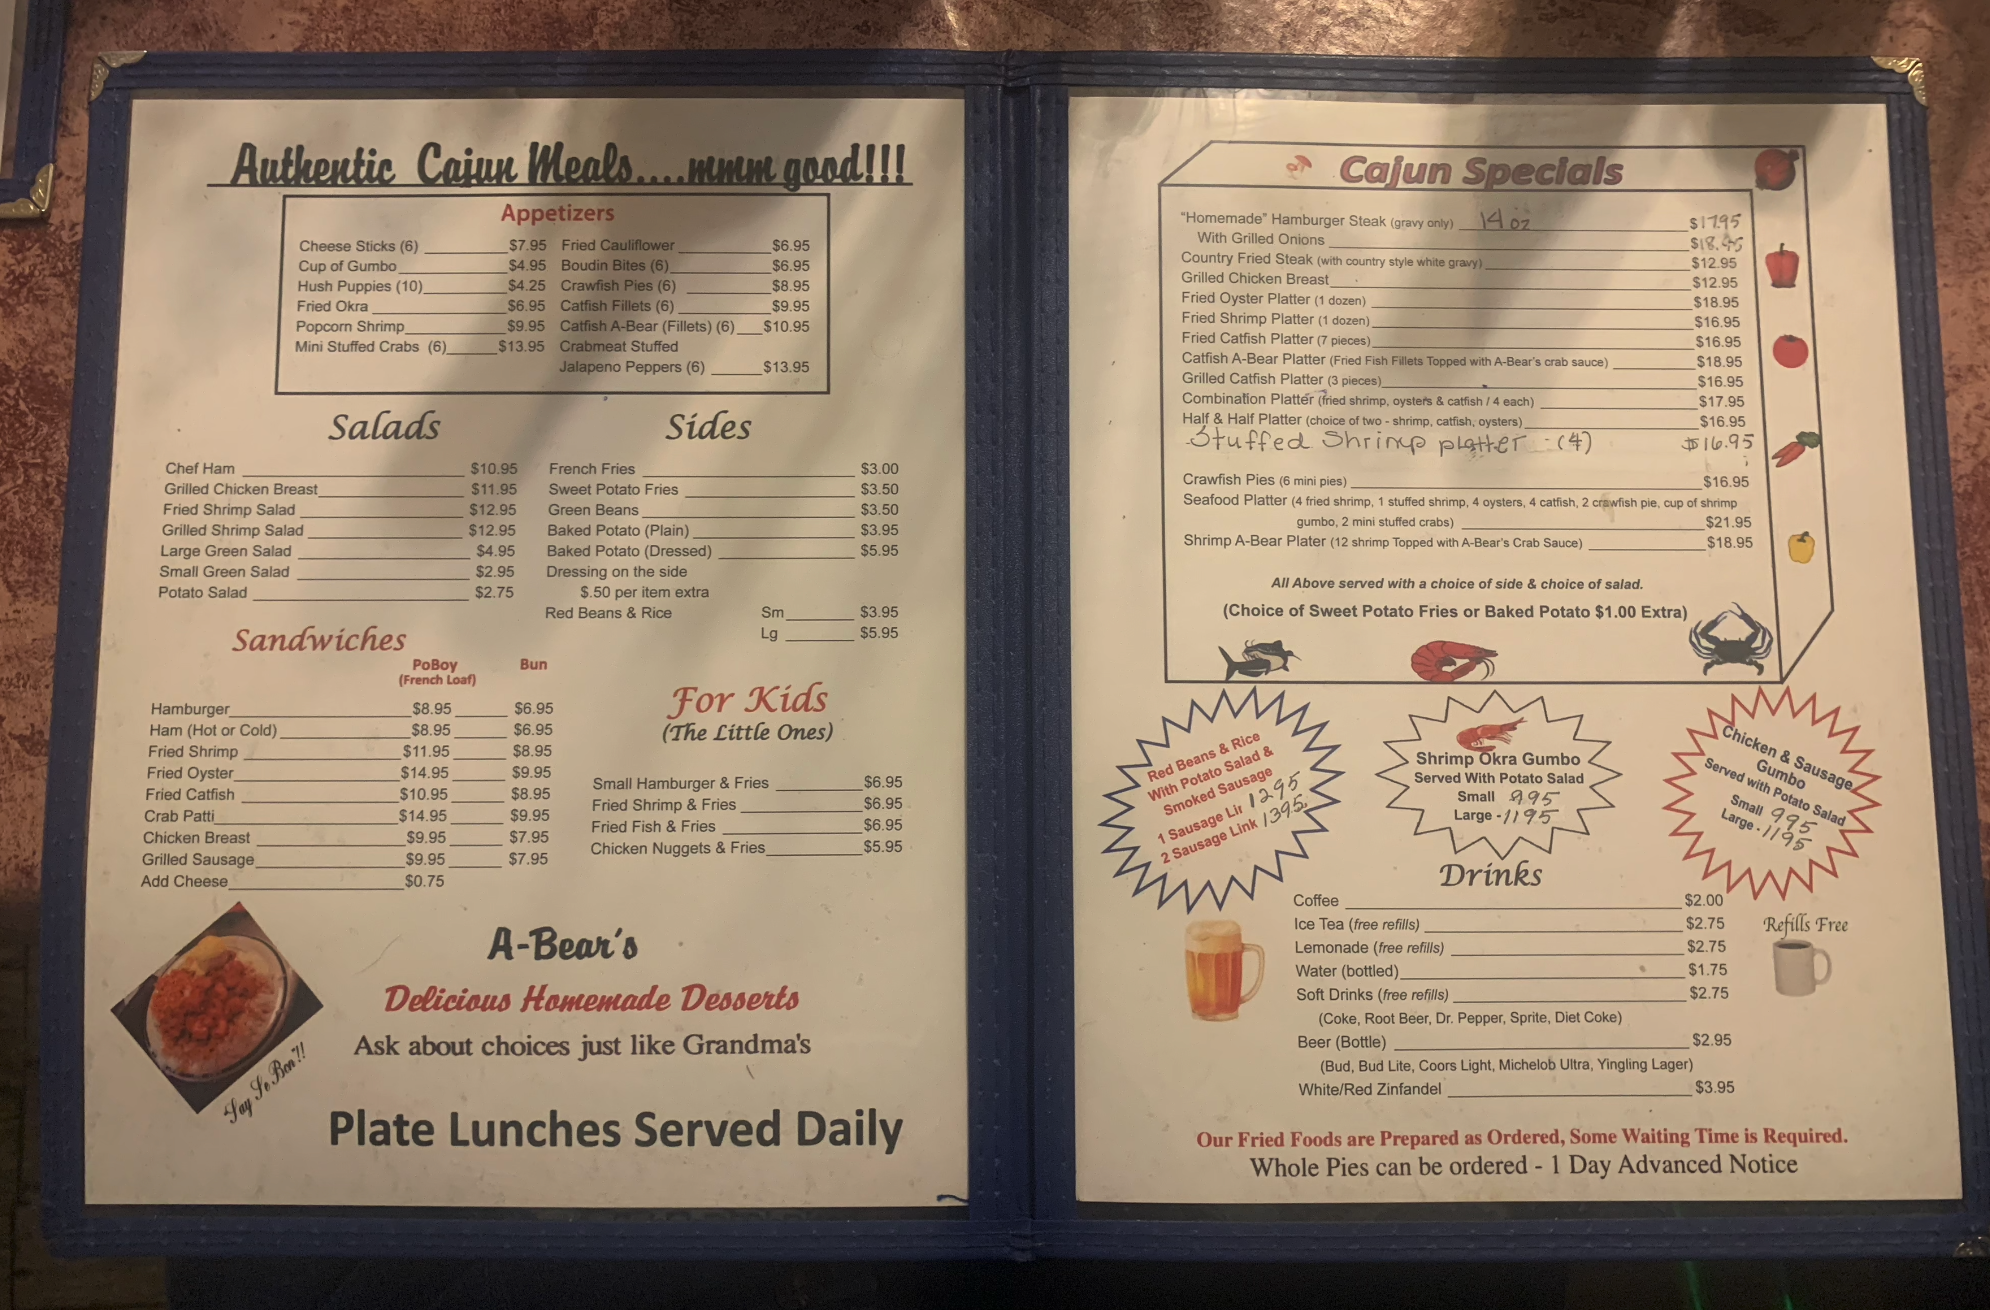 Authentic Cajun Meals....mmm good!!!
Appetizers
Cheese Sticks (6) $7.95 Fried Cauliflower $6.95
Cup of Gumbo $4.95 Boudin Bites (6) $6.95
Hush Puppies (10) $4.25 Crawfish Pies (6) $8.95
Fried Okra $6.95 Catfish Fillets (6) $9.95
Popcorn Shrimp $9.95 Catfish A-Bear (Fillets) (6) $10.95
Mini Stuffed Crabs (6) $13.95 Crabmeat Stuffed
Jalapeno Peppers (6) $13.95
Salads
Chef Ham $10.95
Grilled Chicken Breast $11.95
Fried Shrimp Salad $12.95
Grilled Shrimp Salad $12.95
Large Green Salad $4.95
Small Green Salad $2.95
Potato Salad $2.75
Sides
French Fries $3.00
Sweet Potato Fries $3.50
Green Beans $3.50
Baked Potato (Plain) $3.95
Baked Potato (Dressed) $5.95
Dressing on the side
$.50 per item extra
Red Beans & Rice Sm $3.95
Lg $5.95
Sandwiches
PoBoy Bun
(French Loaf)
Hamburger $8.95 $6.95
Ham (Hot or Cold) $8.95 $6.95
Fried Shrimp $11.95 $8.95
Fried Oyster $14.95 $9.95
Fried Catfish $10.95 $8.95
Crab Patti $14.95 $9.95
Chicken Breast $9.95 $7.95
Grilled Sausage $9.95 $7.95
Add Cheese $0.75
For Kids
(The Little Ones)
Small Hamburger & Fries $6.95
Fried Shrimp & Fries $6.95
Fried Fish & Fries $6.95
Chicken Nuggets & Fries $5.95
A-Bear's
Delicious Homemade Desserts
Ask about choices just like Grandma's
"Say Se Bon"!!
Plate Lunches Served Daily
Cajun Specials
"Homemade" Hamburger Steak (gravy only) 14 oz $17.95
With Grilled Onions $18.45
Country Fried Steak (with country style white gravy) $12.95
Grilled Chicken Breast $12.95
Fried Oyster Platter (1 dozen) $18.95
Fried Shrimp Platter (1 dozen) $16.95
Fried Catfish Platter (7 pieces) $16.95
Catfish A-Bear Platter (Fried Fish Fillets Topped with A-Bear's crab sauce) $18.95
Grilled Catfish Platter (3 pieces) $16.95
Combination Platter (fried shrimp, oysters & catfish / 4 each) $17.95
Half & Half Platter (choice of two - shrimp, catfish, oysters) $16.95
Stuffed Shrimp platter - (4) $16.95
Crawfish Pies (6 mini pies) $16.95
Seafood Platter (4 fried shrimp, 1 stuffed shrimp, 4 oysters, 4 catfish, 2 crawfish pie, cup of shrimp
gumbo, 2 mini stuffed crabs) $21.95
Shrimp A-Bear Plater (12 shrimp Topped with A-Bear's Crab Sauce) $18.95
All Above served with a choice of side & choice of salad.
(Choice of Sweet Potato Fries or Baked Potato $1.00 Extra)
Red Beans & Rice
With Potato Salad &
Smoked Sausage
1 Sausage Lir 1295
2 Sausage Link 1395
Shrimp Okra Gumbo
Served With Potato Salad
Small 995
Large - 1195
Chicken & Sausage
Gumbo
Served with Potato Salad
Small 995
Large - 1195
Drinks
Coffee $2.00
Ice Tea (free refills) $2.75
Lemonade (free refills) $2.75
Water (bottled) $1.75
Soft Drinks (free refills) $2.75
(Coke, Root Beer, Dr. Pepper, Sprite, Diet Coke)
Beer (Bottle) $2.95
(Bud, Bud Lite, Coors Light, Michelob Ultra, Yingling Lager)
White/Red Zinfandel $3.95
Refills Free
Our Fried Foods are Prepared as Ordered, Some Waiting Time is Required.
Whole Pies can be ordered - 1 Day Advanced Notice